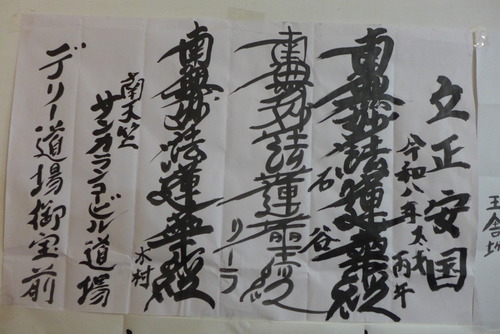 立正安国
令和八年太才丙午
南無妙法蓮華経
石谷
南無妙法蓮華経
リーラ
南無妙法蓮華経
木村
南天竺
サンカランコービル道場
デリー道場御宝前